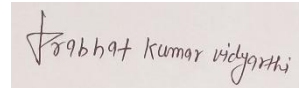 Prabhat kumar vidyarthi